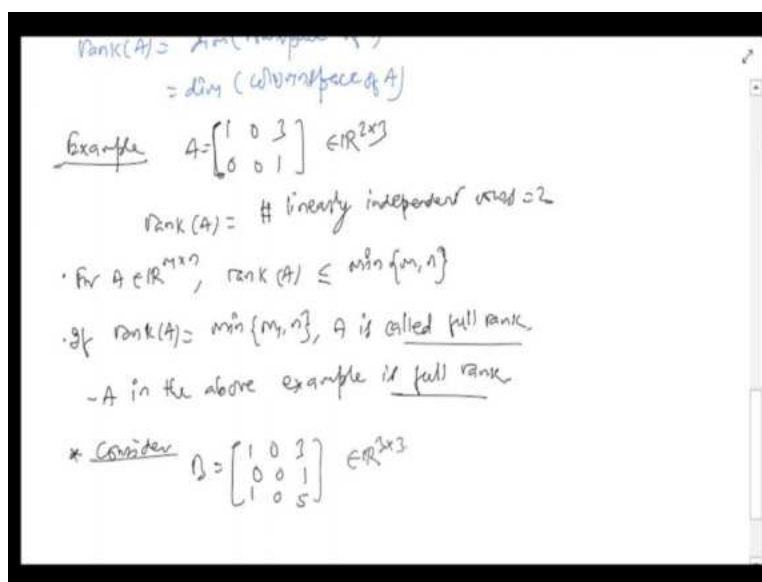 rank(A) = dim(
= dim (column space of A)
Example A = [1 0 3
0 0 1] ∈ ℝ^{2×3}
rank (A) = # linearly independent rows = 2
· For A ∈ ℝ^{m×n}, rank (A) ≤ min {m, n}
· If rank(A) = min {m, n}, A is called full rank.
- A in the above example is full rank
* Consider B = [1 0 3
0 0 1
1 0 5] ∈ ℝ^{3×3}